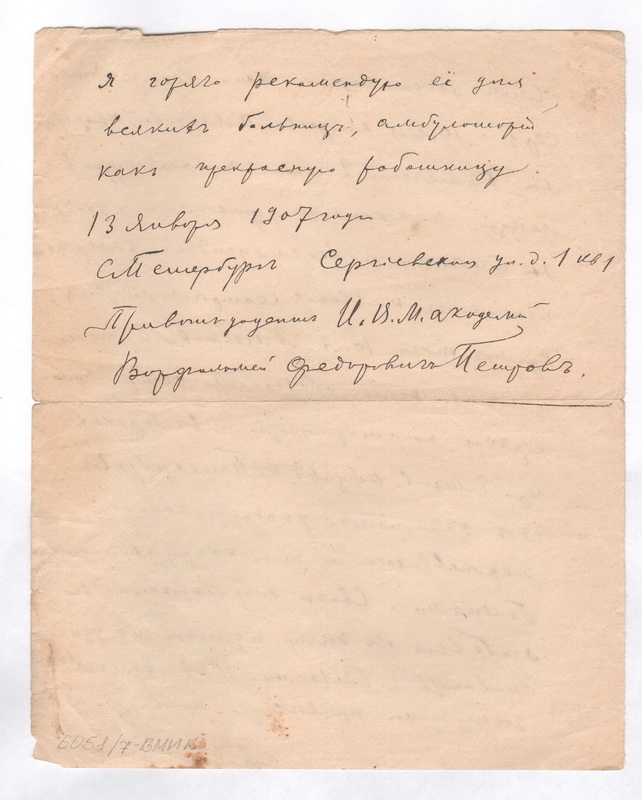 я горячо рекомендую её для
всякихъ больницъ, амбулаторій
какъ прекрасную работницу.
13 Января 1907 года
СПетербургъ Сергіевская ул. д. 1 кв 1
Приватъ доцентъ И. В. М. академіи
Варфоломей Федоровичъ Петровъ.
6051/7-ВМИМ